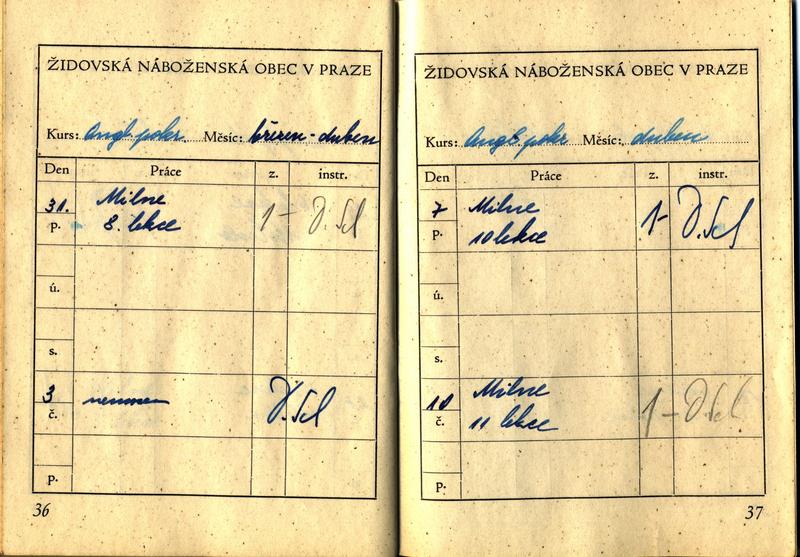 ŽIDOVSKÁ NÁBOŽENSKÁ OBEC V PRAZE
Kurs: Angl. pokr. Měsíc: březen - duben
Den Práce z. instr.
31. Milne
p. 8. lekce 1-
ú.
s.
3
č.
p.
36
ŽIDOVSKÁ NÁBOŽENSKÁ OBEC V PRAZE
Kurs: Angl. pokr Měsíc: duben
Den Práce z. instr.
7 Milne
p. 10 lekce 1-
ú.
s.
10 Milne
č. 11 lekce 1-
p.
37